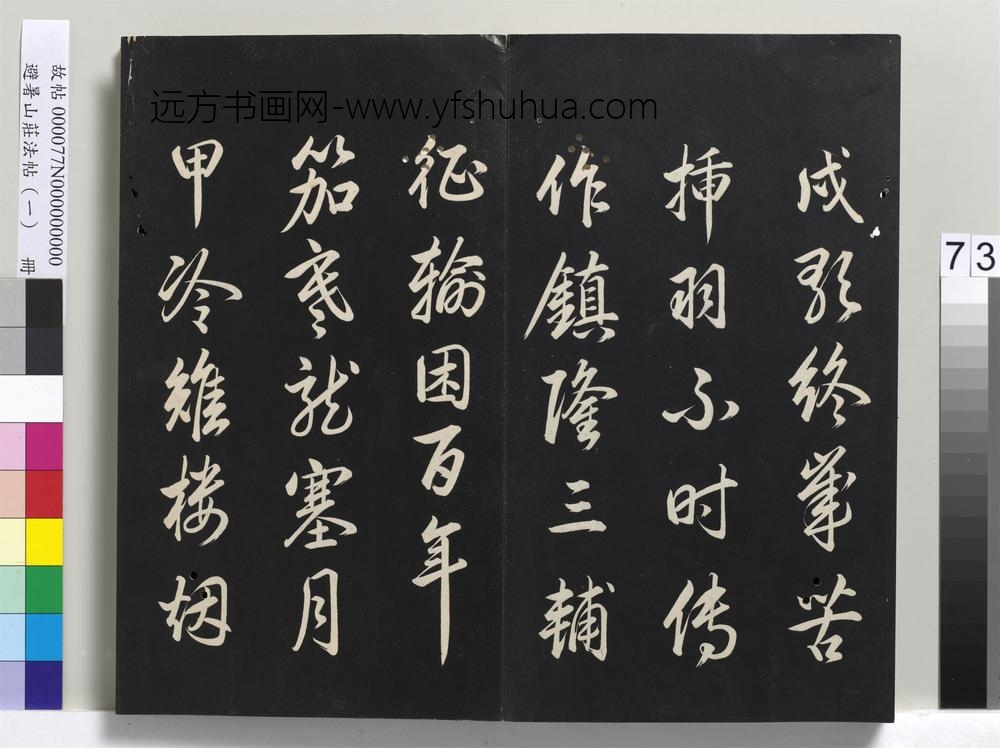 远方书画网-www.yfshuhua.com
故帖 000077N000000000
避暑山莊法帖（一） 冊
73
戍歌終歲苦
揷羽不时傳
作鎮隆三輔
征輸困百年
笳寒龍塞月
甲冷雉楼烟